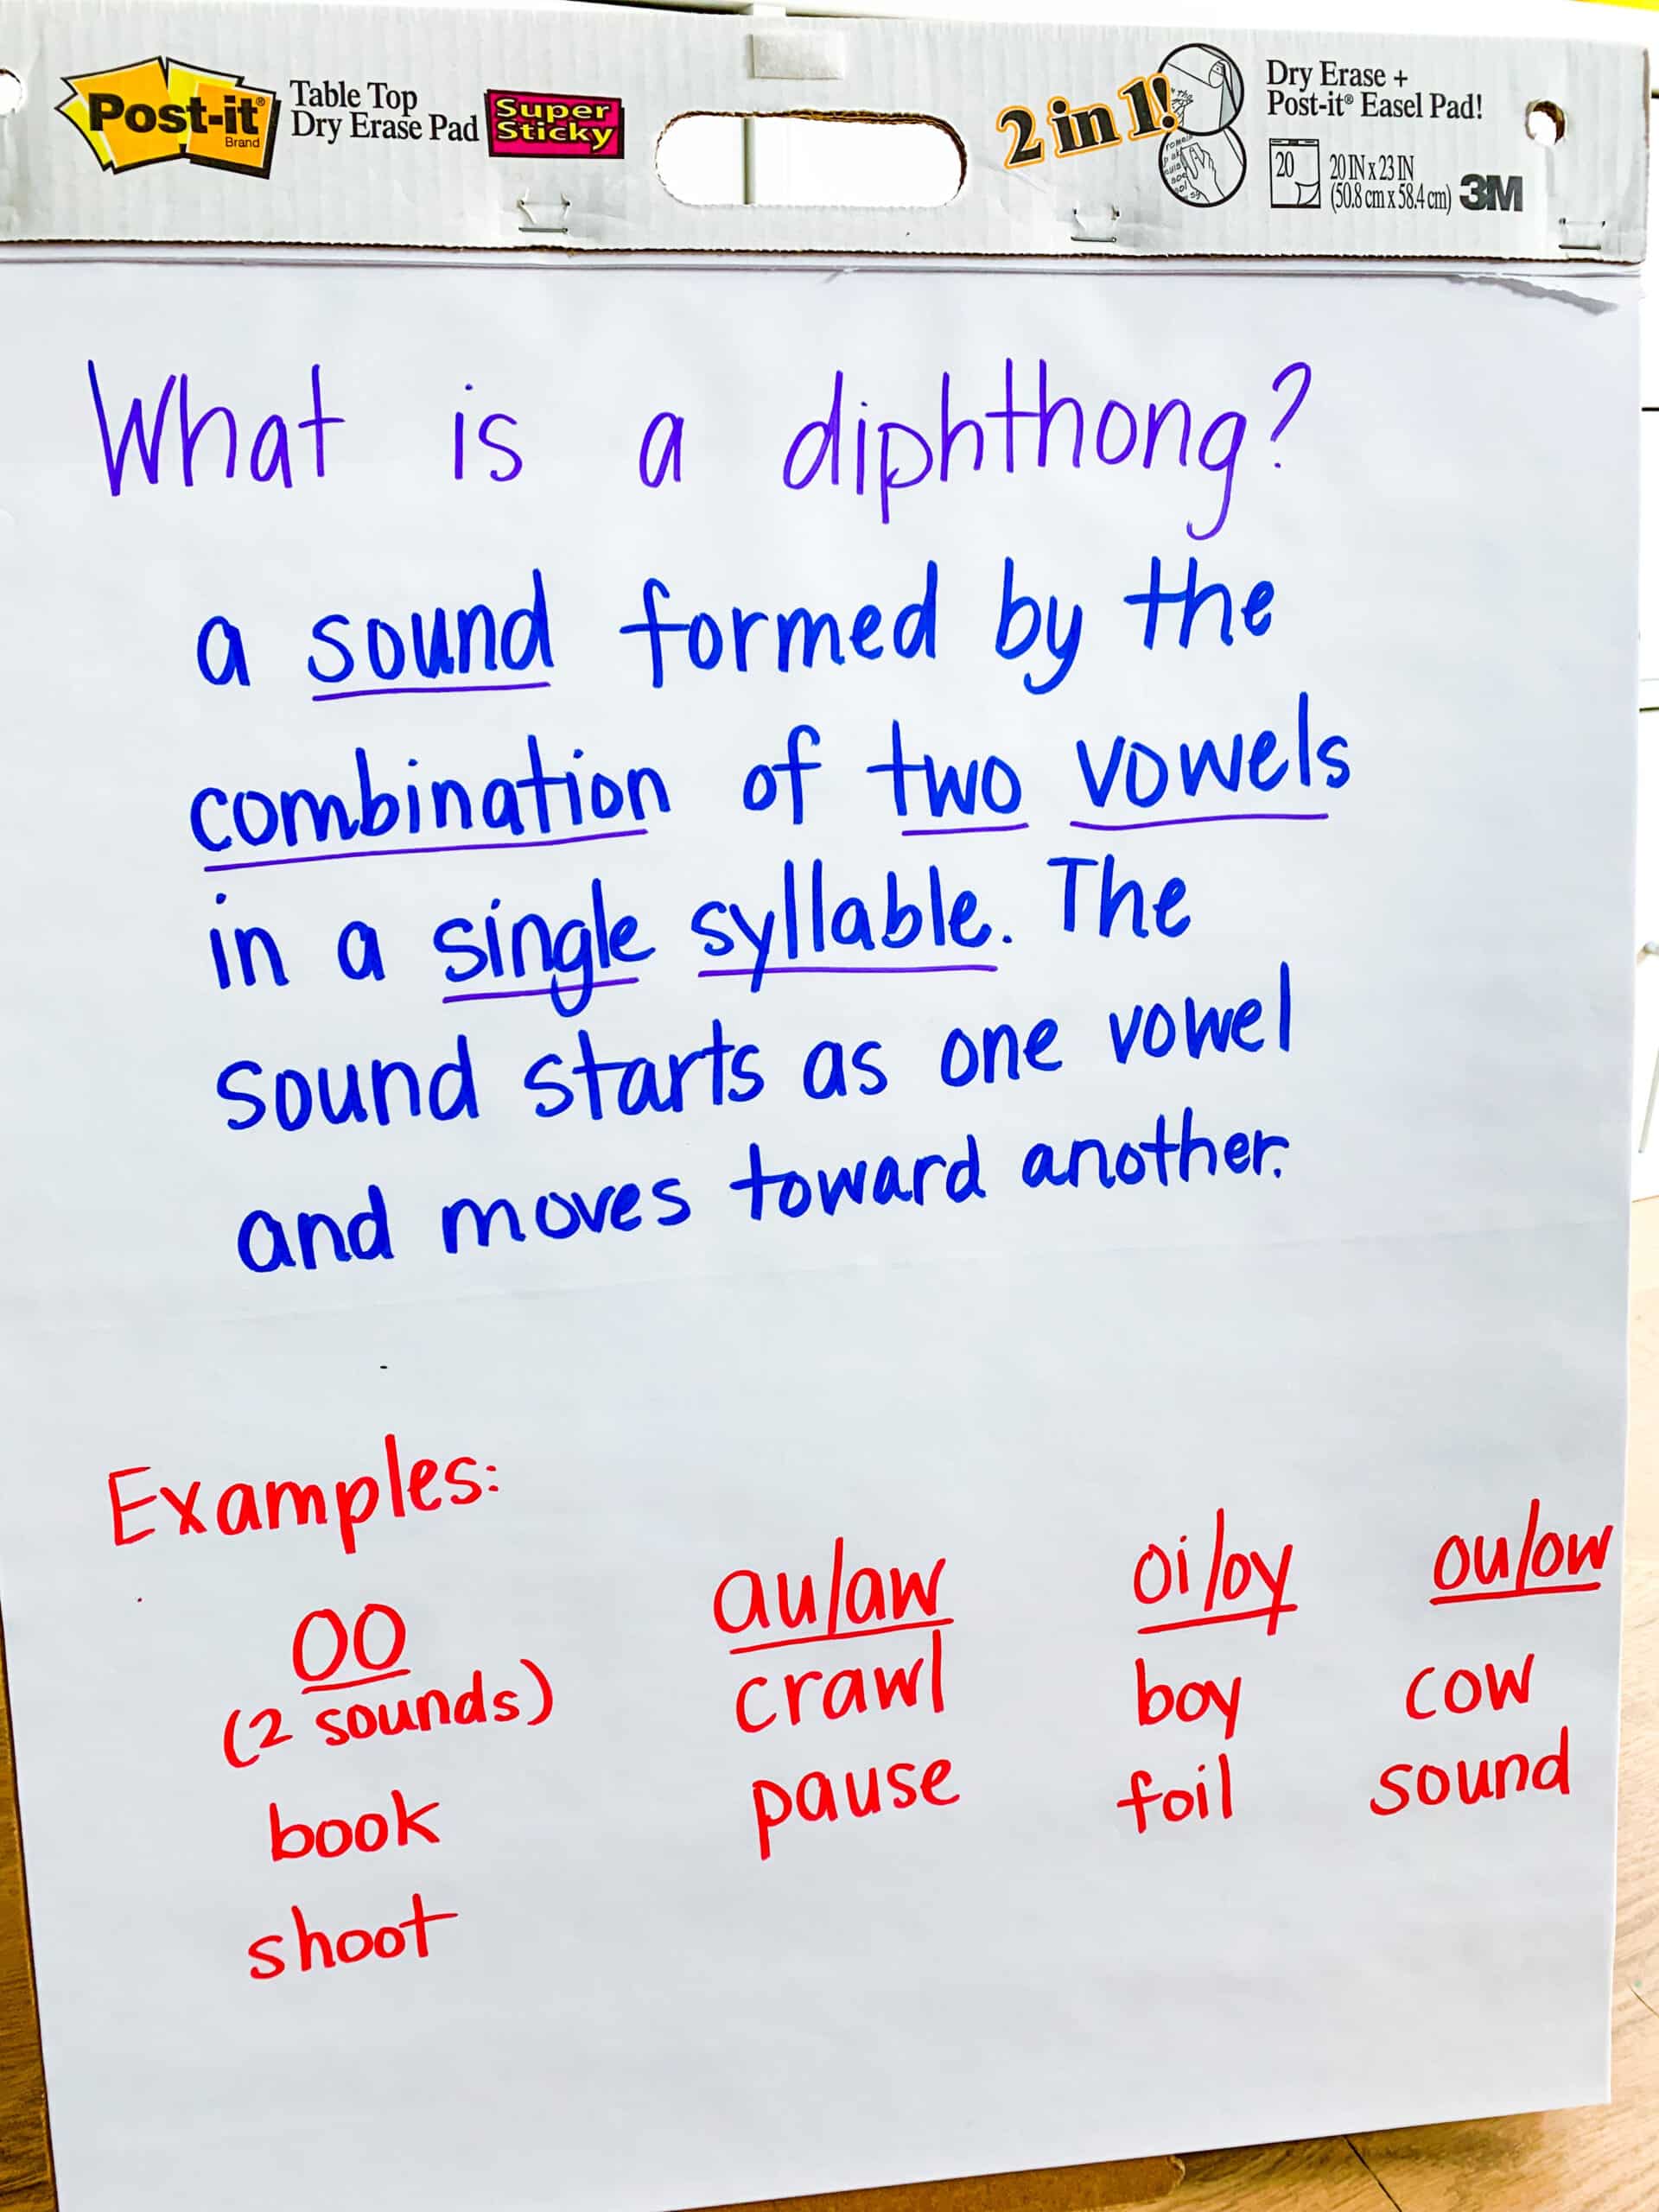 Post-it® Brand
Table Top
Dry Erase Pad
Super
Sticky
2 in 1!
Dry Erase +
Post-it® Easel Pad!
20
20 IN x 23 IN
(50.8 cm x 58.4 cm)
3M
What is a diphthong?
a sound formed by the
combination of two vowels
in a single syllable. The
sound starts as one vowel
and moves toward another.
Examples:
oo
(2 sounds)
book
shoot
au/aw
crawl
pause
oi/oy
boy
foil
ou/ow
cow
sound